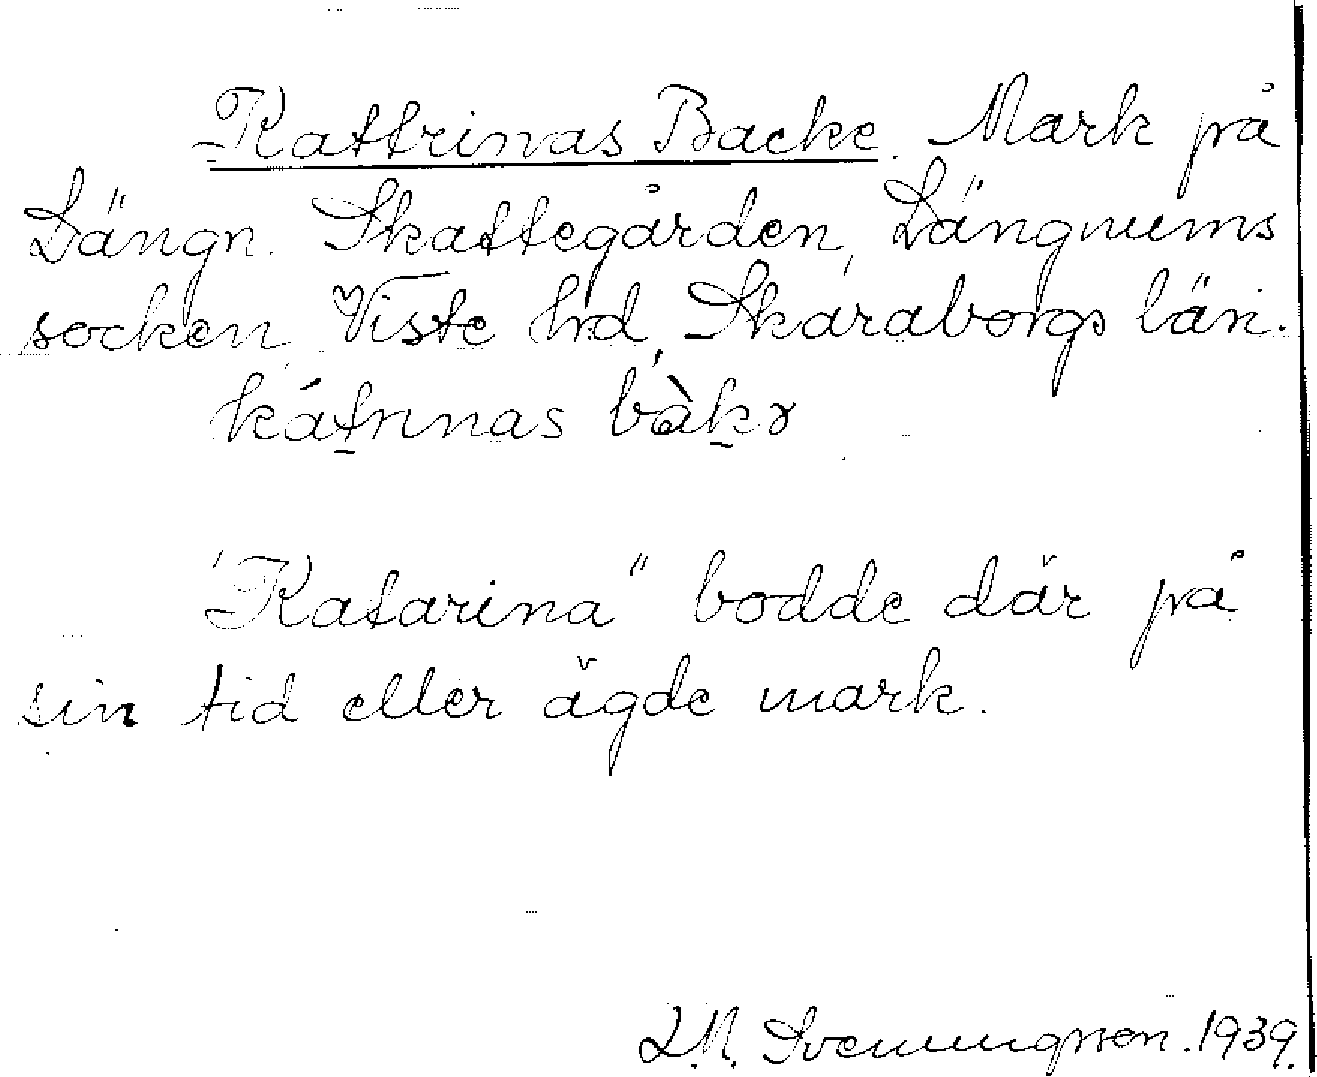 Kattrinas Backe. Mark på
Längn. Skattegården, Längnums
socken, Viste hd, Skaraborgs län.
kátrinas bàkə
"Katarina" bodde där på
sin tid eller ägde mark.
L.M. Svenungsson. 1939.